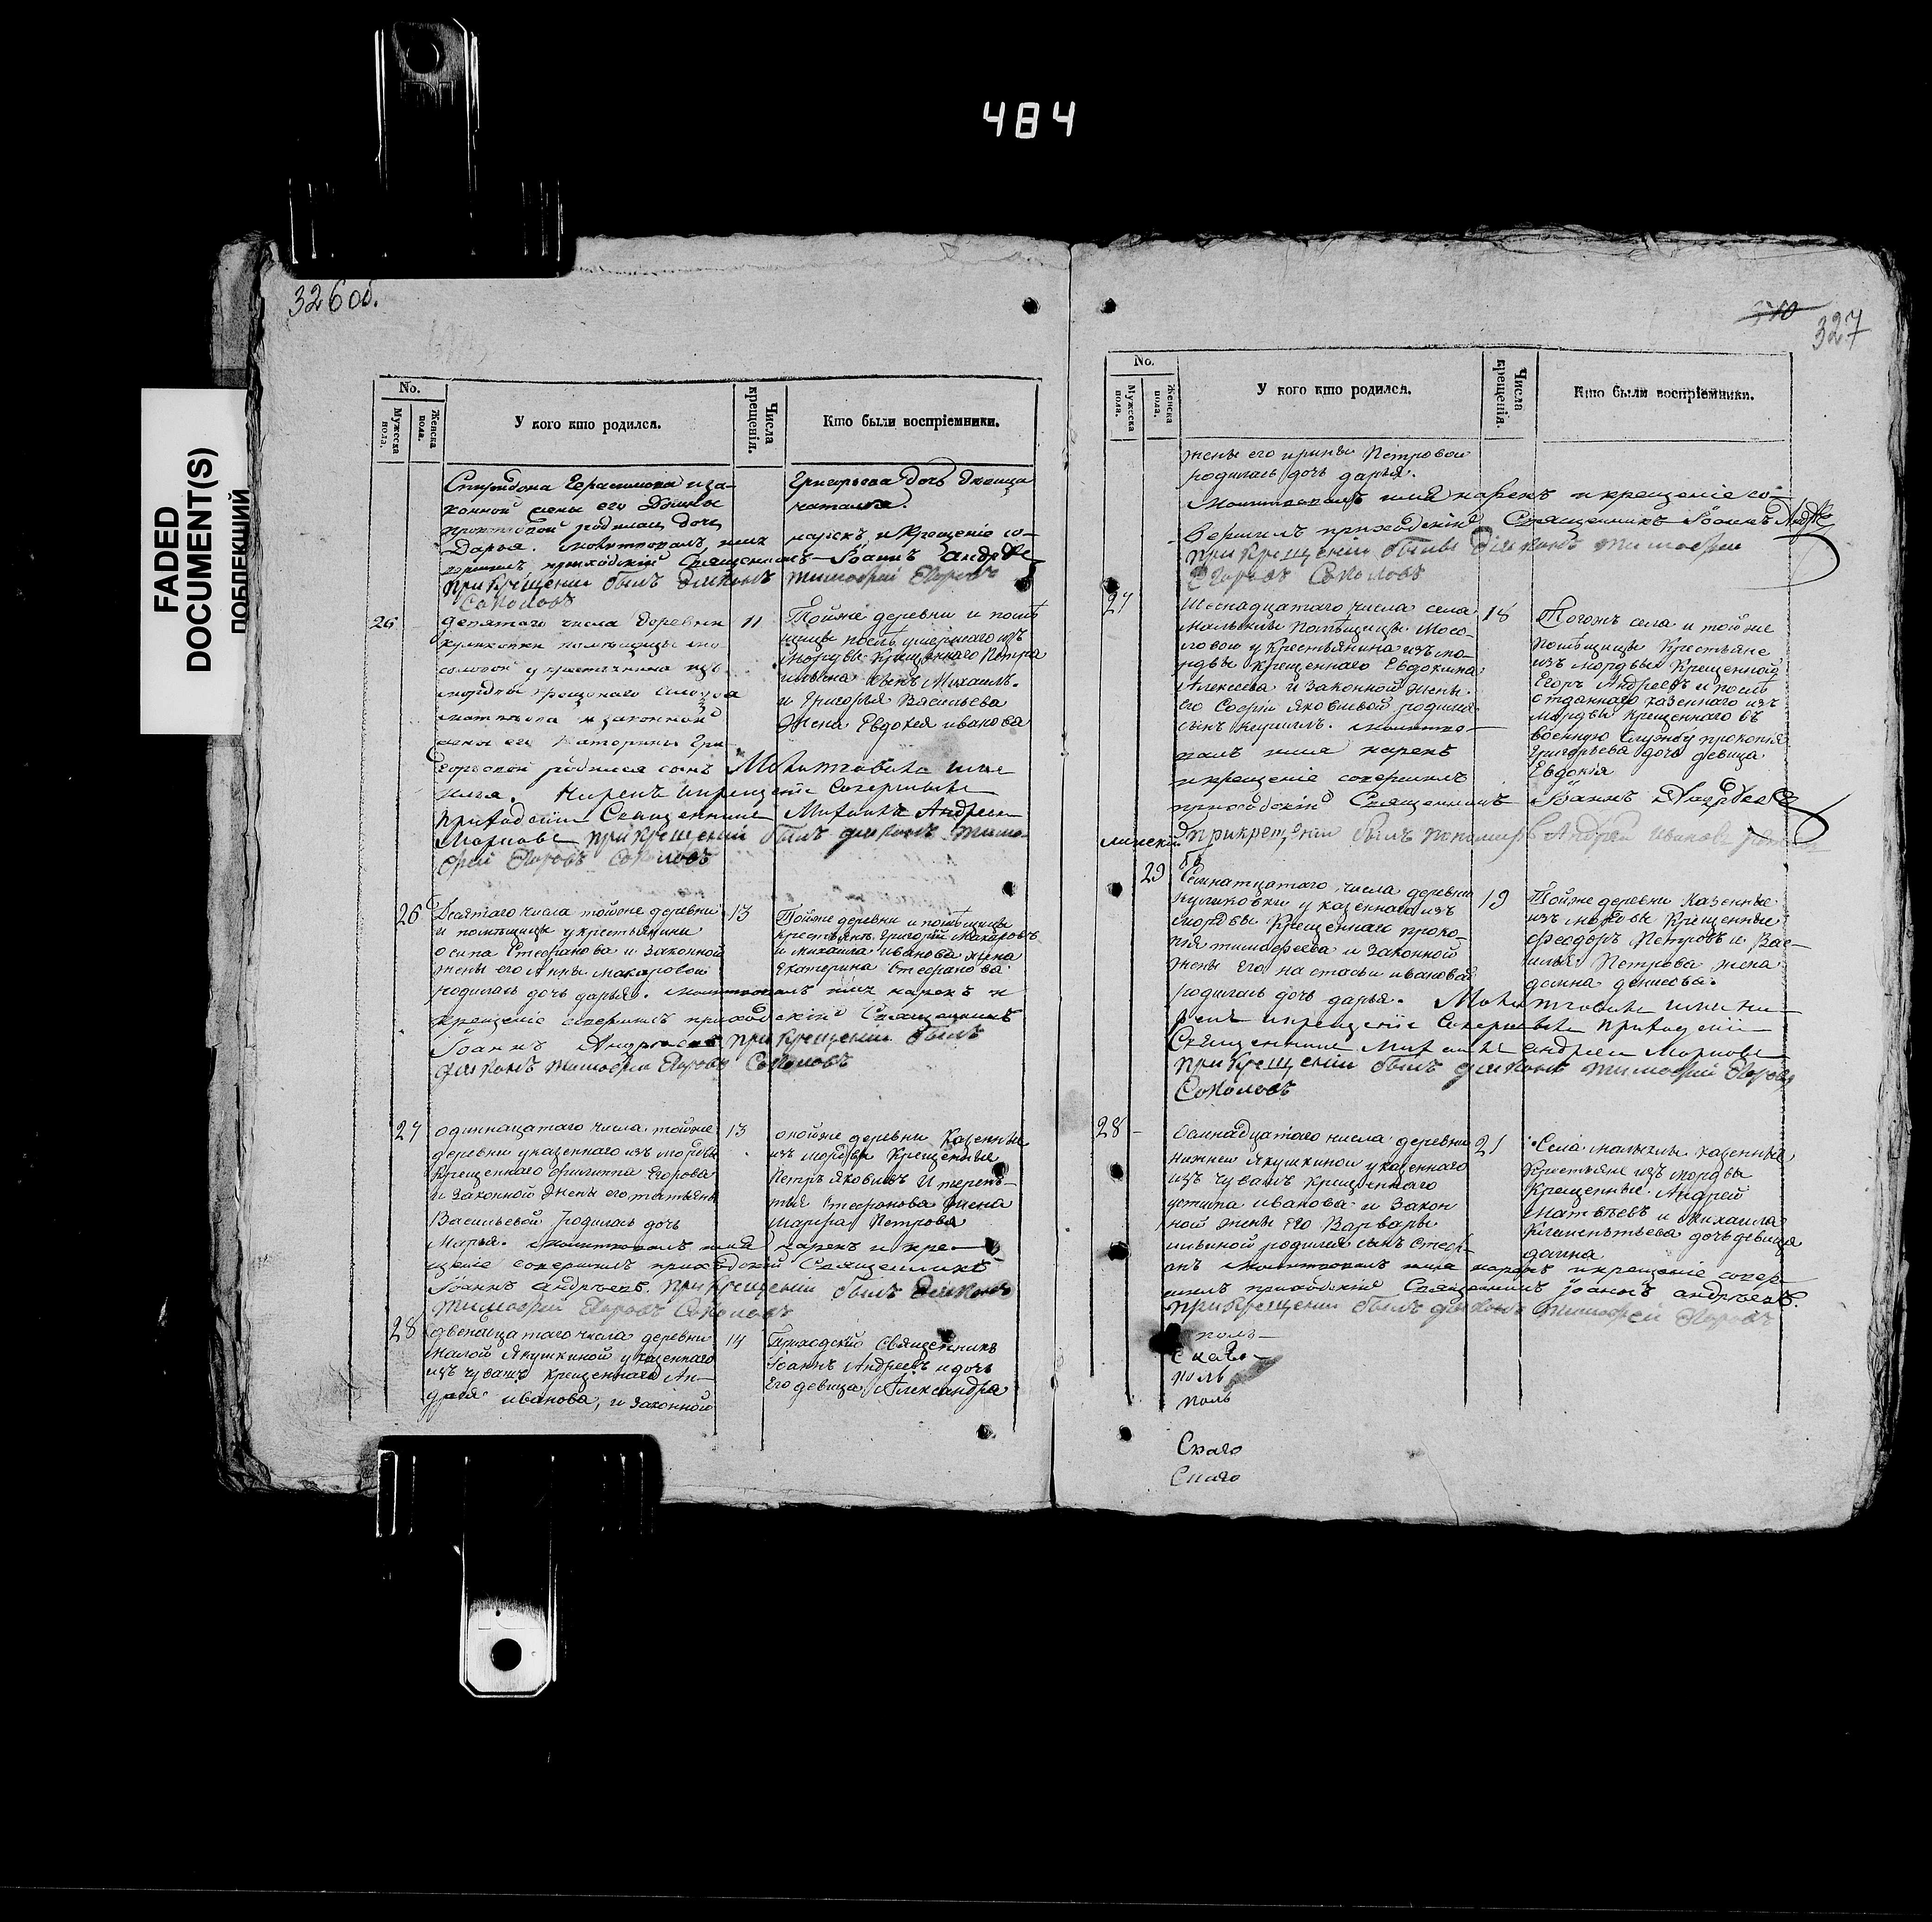 484
FADED
DOCUMENT(S)
ПОБЛЕКШИЙ
326 об.
No.
Мужеска пола.
Женска пола.
У кого кто родился.
Числа крещенія.
Кто были воспріемники.
Спиридона Герасимова и за-
конной жены его
родилась дочь
Дарья. Молитвовалъ, имя
вершилъ приходскій Священникъ Іоаннъ Андрее
при крещеніи былъ діяконъ тимофей Егоровъ
Соколовъ
Григорьева дочь девица
наталья.
нарекъ, и крещеніе со-
26
девятаго числа деревни
куликовки помѣщицы мо
соловой у крестьянина изъ
мордвы крещенаго
матвѣева и законной
жены его Катерины Гри-
горьевой родился сынъ
Илья.
11
Тойже деревни и помѣ
щицы послѣ умершаго изъ
мордвы крещеннаго Петра
ильина сынъ Михаилъ.
и Григорья Васильева
жена Евдокея иванова
Молитвовалъ имя
нарекъ и крещеніе совершилъ
приходскій Священникъ Михаилъ Андреевъ
при крещеніи былъ діяконъ тимо-
фей Егоровъ Соколовъ
26
Десятаго числа тойже деревни
и помѣщицы у крестьянина
осипа Стефанова и законной
жены его Анны Макаровой
родилась дочь дарья. Молитвовалъ имя нарекъ и
крещеніе совершилъ приходскій Священникъ
Іоаннъ Андреевъ при крещеніи былъ
діяконъ тимофей Егоровъ Соколовъ
13
Тойже деревни и помѣщицы
крестьянъ Григорей Макаровъ
и михаила иванова жена
Екатерина Стефанова.
27
одиннацатаго числа тойже
деревни у казеннаго изъ мордвы
крещеннаго филиппа Егорова
и законной жены его татьяны
Васильевой родилась дочь
Марья. Молитвовалъ имя нарекъ и кре-
щеніе совершилъ приходскій Священникъ
Іоаннъ андрѣевъ. при крещеніи былъ діяконъ
тимофей Егоровъ Соколовъ
13
оной же деревни казенные
изъ мордвы крещенные
Петръ Яковлевъ и терень-
тья Стефанова жена
марфа Петрова
28
двенацатаго числа деревни
малой Якушкиной у казеннаго
изъ чувашъ крещеннаго Ан-
дрея иванова, и законной
14
Приходскій священникъ
Іоаннъ Андреевъ и дочь
Его девица Александра
327
No.
Мужеска пола.
Женска пола.
У кого кто родился.
Числа крещенія.
Кто были воспріемники.
жены его ирины Петровой
родилась дочь дарья.
Молитвовалъ имя нарекъ и крещеніе со-
вершилъ приходскій Священникъ Іоаннъ Андре
при крещеніи былъ діяконъ тимофей
Егоровъ Соколовъ
27
Шеснадцатаго числа села
малыклы помѣщицы Мосо-
ловой у крестьянина изъ мо-
рдвы крещеннаго Евдокима
Алексеева и законной жены
его Софьи Яковлевой родился
сынъ кирилъ. Молитво-
валъ имя нарекъ
и крещеніе совершилъ
приходскій Священникъ Іоаннъ Андреевъ
при крещеніи былъ пономарь Андрей иванов
18
Тогожъ села и тойже
помѣщицы крестьяне
изъ мордвы крещенной
Егоръ Андреевъ и послѣ
отданнаго казеннаго изъ
мордвы крещеннаго въ
военную службу прокопья
Григорьева дочь девица
Евдокія
29
Семнатцатаго числа деревни
куликовки у казеннаго изъ
мордвы крещеннаго проко-
пья тимофеева и законной
жены его настасьи ивановой
родилась дочь дарья. Молитвовалъ имя на-
рекъ и крещеніе совершилъ приходскій
Священникъ Михаилъ андреевъ
при крещеніи былъ діяконъ тимофей Егоровъ
Соколовъ
19
Тойже деревни казенные
изъ мордвы крещенные
феодоръ Петровъ и Вас-
илья Петрова жена
домна денисова.
28
Осмнадцатаго числа деревни
нижней якушкиной у казеннаго
изъ чувашъ крещеннаго
устина иванова и закон
ной жены его Варвары
ильиной родился сынъ Стеф-
анъ Молитвовалъ имя нарекъ и крещеніе совер-
шилъ приходскій Священникъ Іоаннъ андрѣевъ.
при крещеніи былъ діяконъ тимофей Егоровъ
21
Села малыклы казенные
крестьяне изъ мордвы
крещенные Андрей
Матвѣевъ и михаила
Климентьева дочь девица
домна
полъ
полъ
полъ
Скаго
Скаго